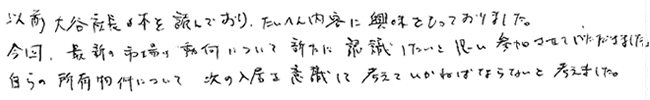 以前 大谷社長の本を読んでおり、たいへん内容に興味をもっておりました。
今回、最新の市場の動向について新たに認識したいと思い参加させていただきました。
自らの所有物件について次の入居を意識して考えていかねばならないと考えました。